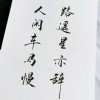 路遥星亦辞
人间车马慢